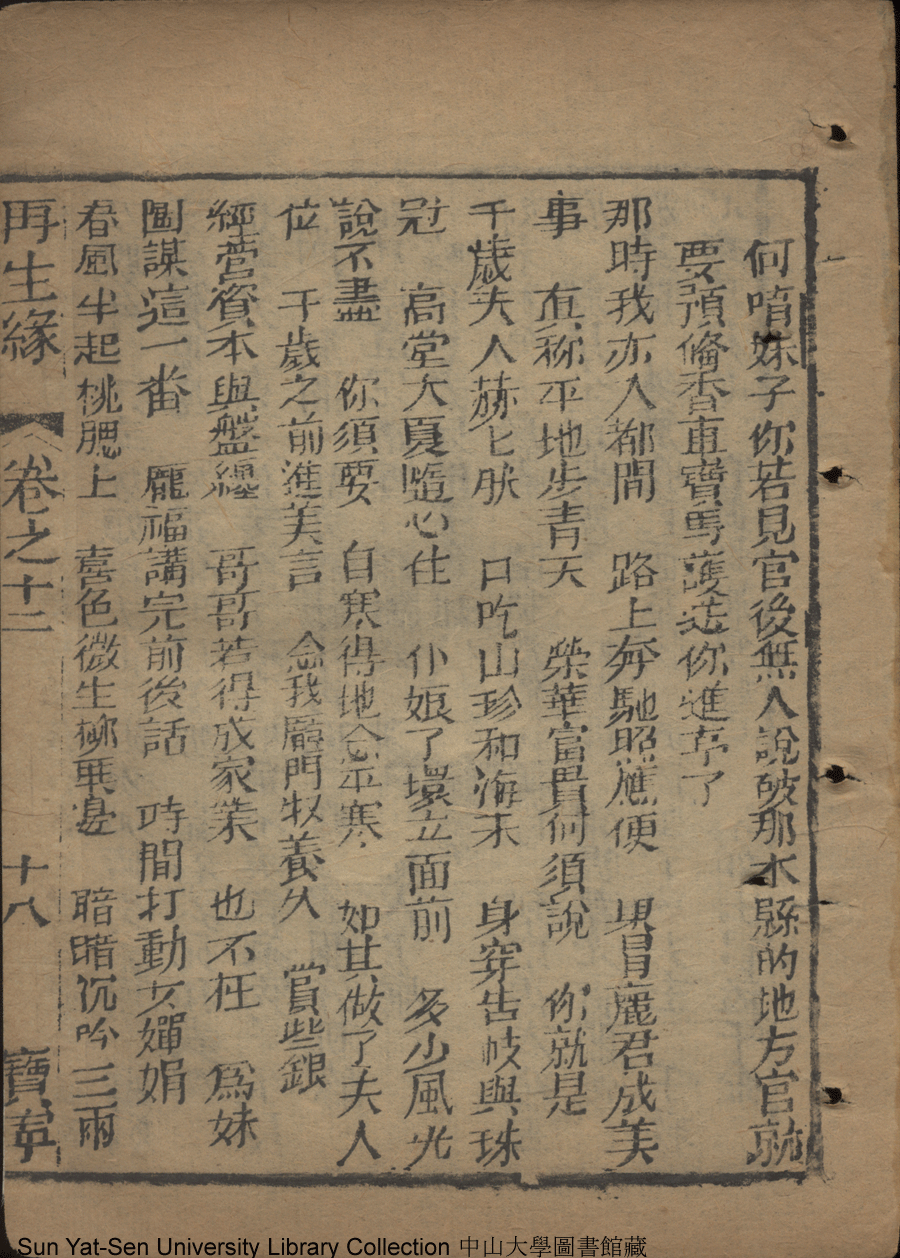 何唷妹子你若見官後無人說破那水縣的地方官就
要預俻香車寶馬護送你進京了
那時我亦入都間　路上奔馳照應便　冒麗君成美
事　真称平地步青天　榮華富貴何須說　你就是
千歲夫人赫七肰　口吃山珍和海未　身穿告岐與珠
冠　高堂大夏隨心住　仆娘了環立面前　多少風光
說不盡　你須要　自寒得地念平寒　如其做了夫人
位　千歲之前進美言　念我龎門牧養久　賞些銀
經營資本與盤纏　哥哥若得成家業　也不枉　爲妹
圖謀這一畨　龎福講完前後話　時間打動女嬋娟
春風半起桃腮上　喜色微生栁葉邊　暗暗沉吟三兩
再生緣　卷之十二　十八　寶寧
Sun Yat-Sen University Library Collection 中山大學圖書館藏